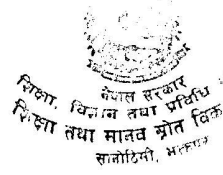 नेपाल सरकार
शिक्षा, विज्ञान तथा प्रविधि
शिक्षा तथा मानव स्रोत विक
सानोठिमी, भक्तपुर